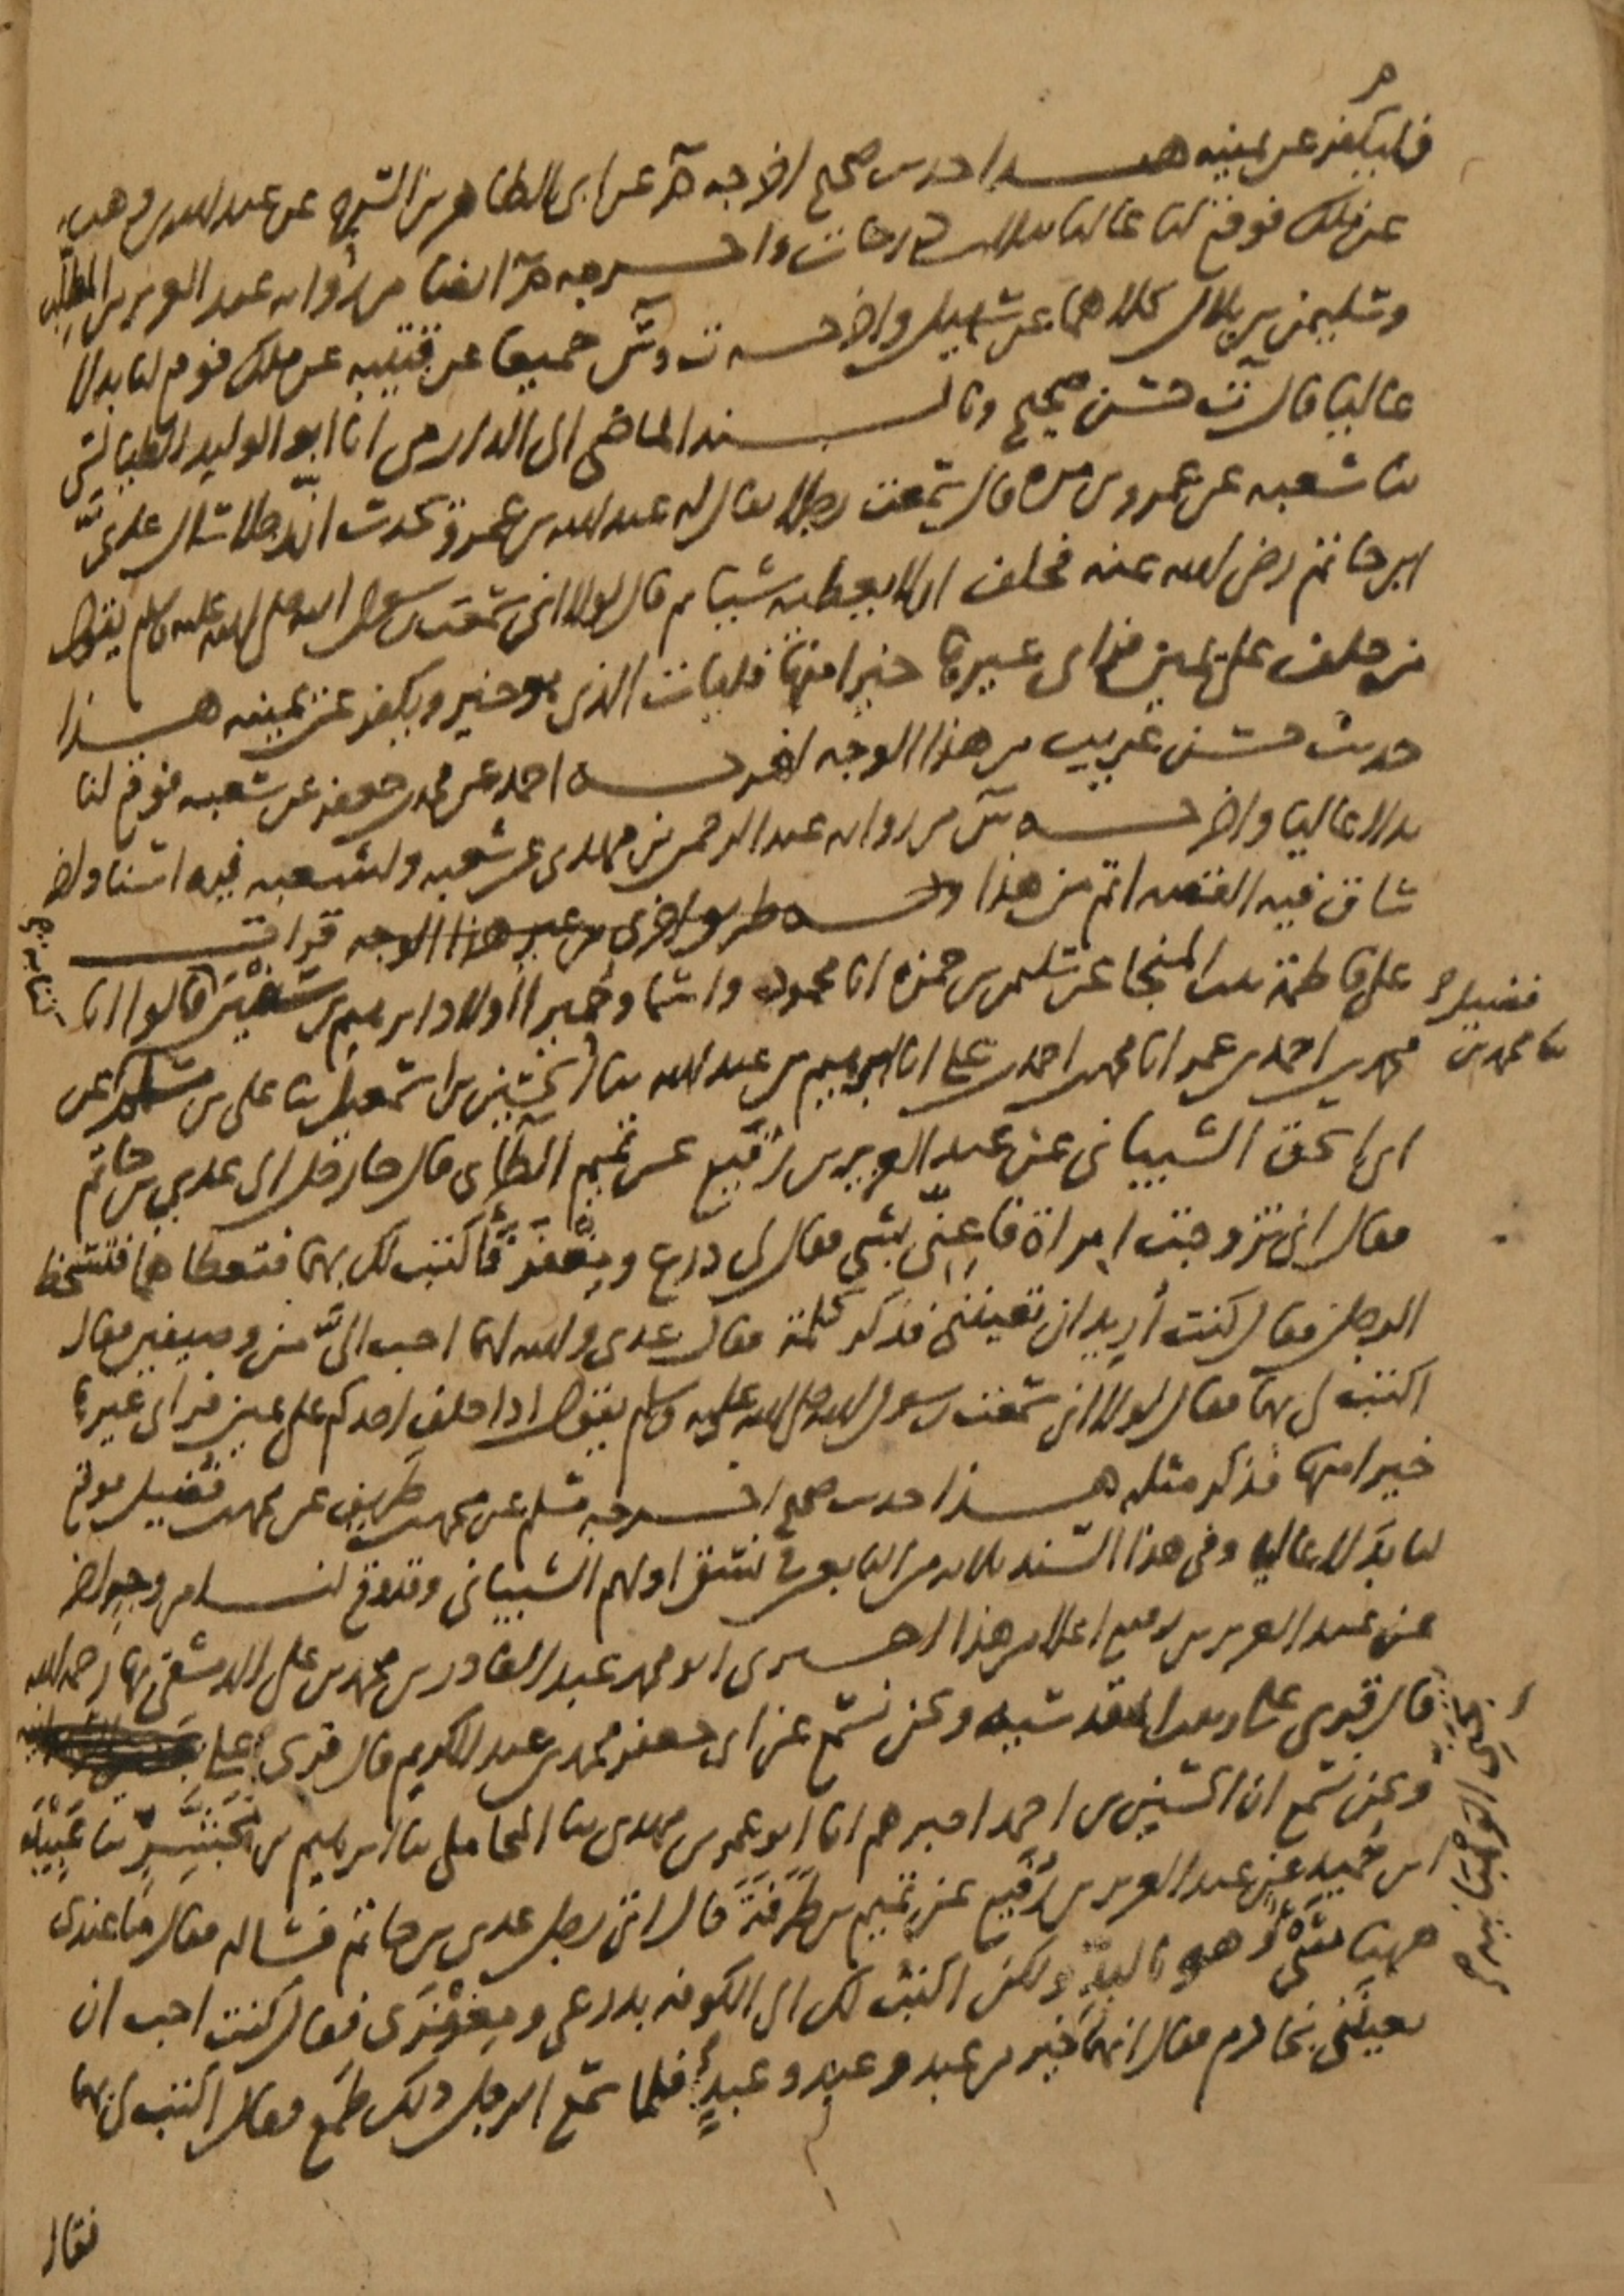 فليكفر عن يمينه هذا حديث صحيح اخرجه م عن ابى الطاهر بن السرح عن عبد الله بن وهب
عن ملك فوقع لنا عاليا بثلاث درجات واخرجه م ايضا من رواية عبد العزيز بن المطلب
وسليمن بن بلال كلاهما عن سهيل واخرجه ت وس جميعا عن قتيبه عن ملك فوقع لنا بدلا
عاليا قال ت حسن صحيح وبالسند الماضى الى الدارمى انا ابو الوليد الطيالسى
ثنا شعبه عن عمرو بن مره قال سمعت رجلا يقال له عبد الله بن عمرو يحدث ان رجلا سال عدى
ابن حاتم رضى الله عنه فحلف ان لا يعطيه شيا ثم قال لولا انى سمعت رسول الله صلى الله عليه وسلم يقول
من حلف على يمين فراى غيرها خيرا منها فليات الذى هو خير وليكفر عن يمينه هذا
حديث حسن غريب من هذا الوجه اخرجه احمد عن محمد بن جعفر عن شعبه فوقع لنا
بدلا عاليا واخرجه س من رواية عبد الرحمن بن مهدى عن شعبه ولشعبه فيه اسناد اخر
ساق فيه القصه اتم من هذا وله طريق اخرى من غير هذا الوجه قرات
على فاطمة بنت المنجا عن سليمن بن حمزه انا محمود واسما وحميرا اولاد ابرهيم بن سفين قالوا انا
محمد بن احمد بن عمر انا محمد بن احمد بن على انا ابرهيم بن عبد الله ثنا الحسين بن اسمعيل ثنا على بن مسلم عن
فضيل
ثنا محمد بن
ابى اسحق الشيبانى عن عبد العزيز بن رفيع عن تميم الطائى قال جا رجل الى عدي بن حاتم
فقال انى تزوجت امراة فاعنى بشى فقال لى درع ومغفر فاكتب لك بهما فتعطاهما فتسخط
الرجل فقال كنت أريد ان تعيننى فذكر كلمة فقال عدى والله لهما احب الىّ من وصيفين فقال
اكتب لى بهما فقال لولا انى سمعت رسول الله صلى الله عليه وسلم يقول اذا حلف احدكم على يمين فراى غيرها
خيرا منها فذكر مثله هذا حديث صحيح اخرجه مسلم عن محمد بن طريف عن محمد بن فضيل فوقع
لنا بدلا عاليا وفى هذا السند ثلاثه من التابعين فى نسق اولهم الشيبانى وقد وقع لنا من وجه اخر
عن عبد العزيز بن رفيع اعلا من هذا اخبرنى ابو محمد عبد القادر بن محمد بن على الدمشقى بها رحمه الله
قال قرى على المقدسيه ونحن نسمع عن ابى جعفر محمد بن عبد الكريم قال قرى على
ونحن نسمع ان الحسين بن احمد اخبرهم انا ابو عمر بن مهدى ثنا المحاملى ثنا ابرهيم بن مجشر ثنا عبيدة
ابن حميد عن عبد العزيز بن رفيع عن تميم بن طرفة قال اتى رجل عدى بن حاتم فساله فقال ما عندى
ههنا شى وهو بالبدو ولكن اكتب لك الى الكوفه بدرعى ومغفرى فقال كنت احب ان
تعيننى بخادم فقال انهما خير من عبد وعبد وعبد فلما سمع الرجل ذلك طمع فقال اكتب لى بهما
فقال